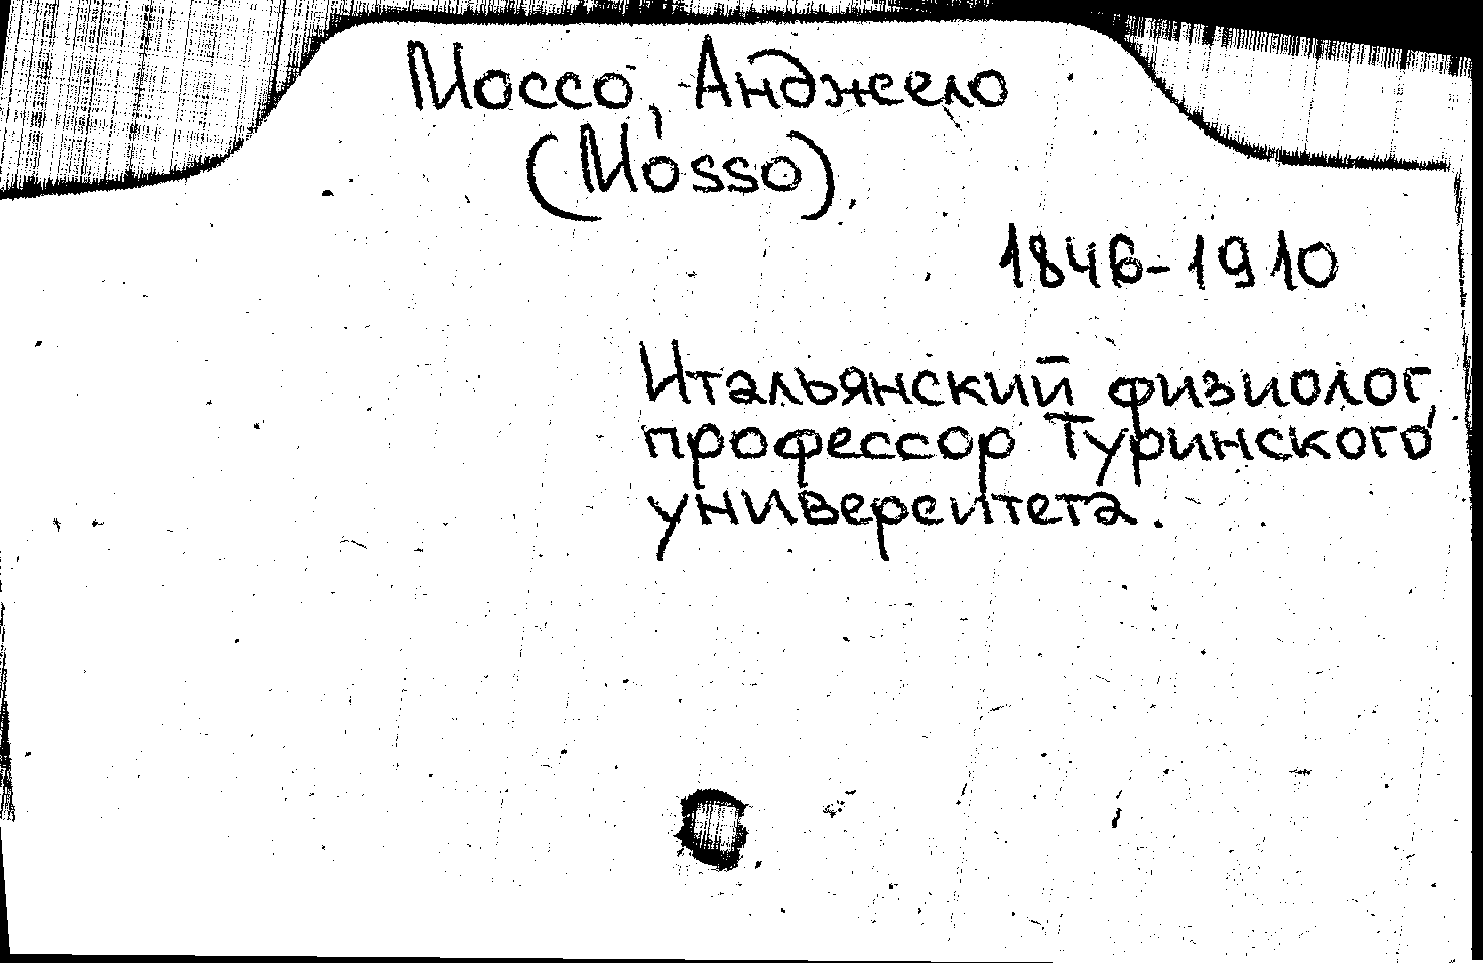 Моссо, Анджело
(Mosso)
1846-1910
Итальянский физиолог,
профессор Туринского
университета.